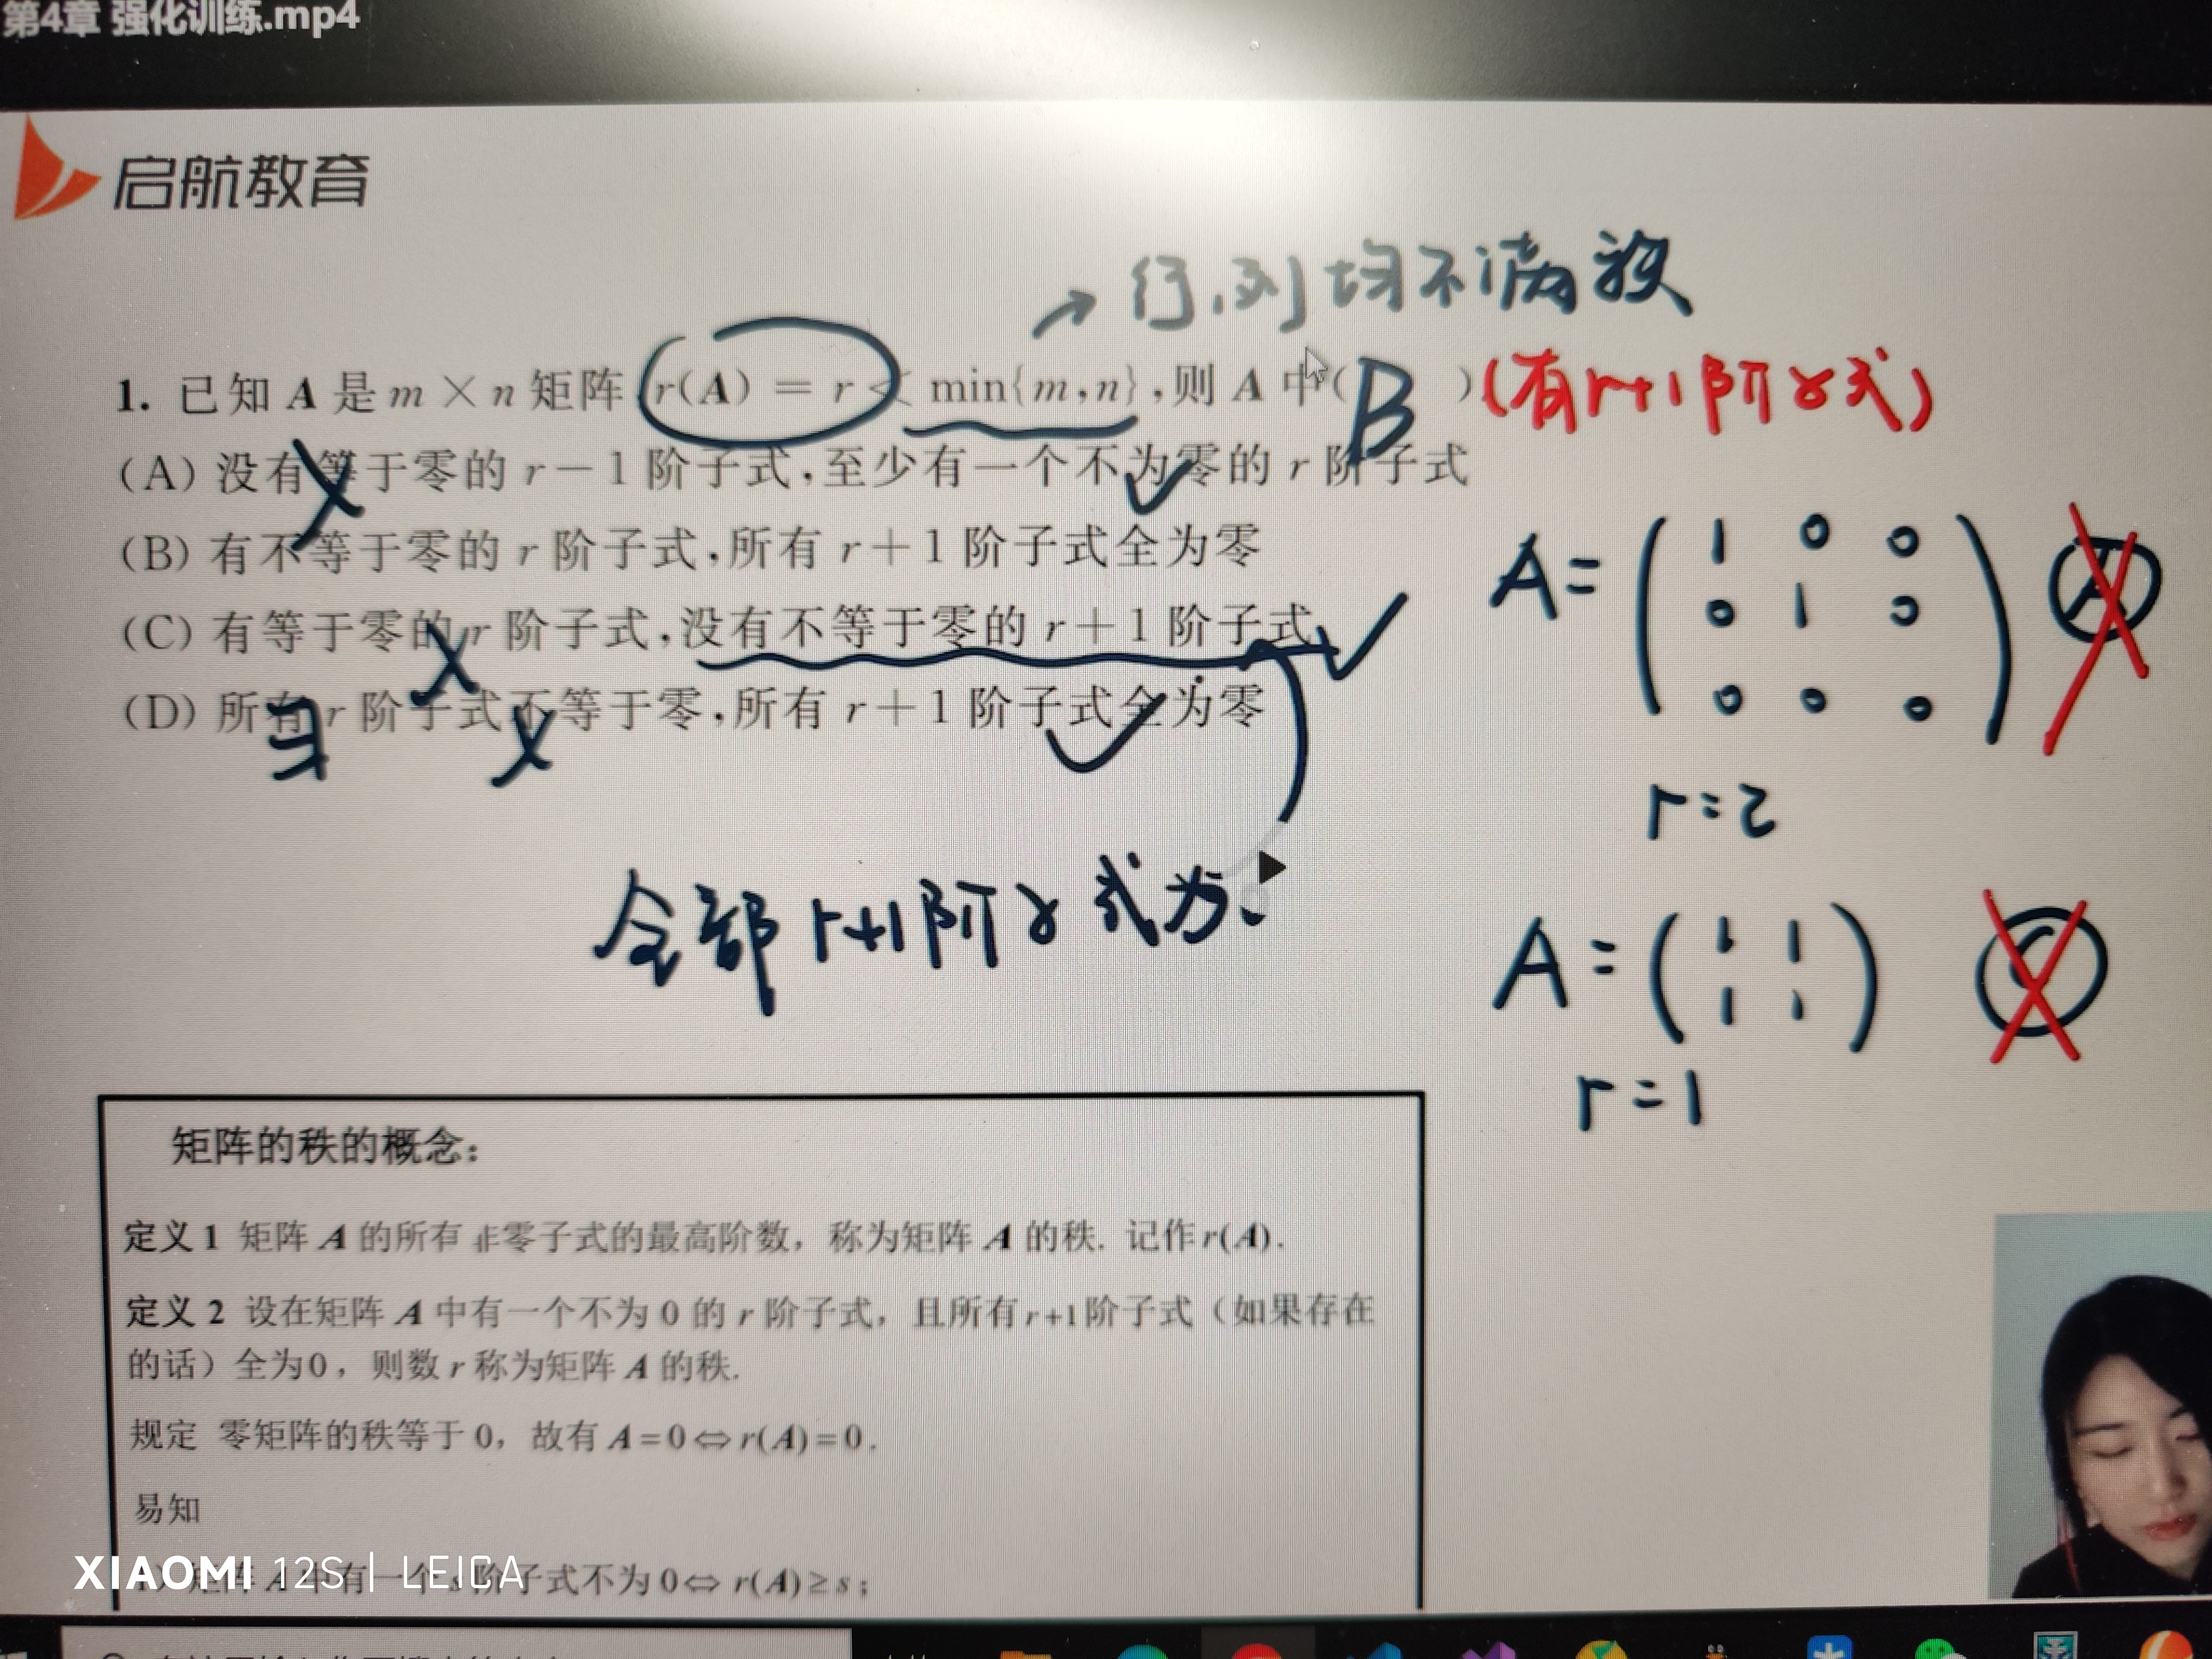 第4章 强化训练.mp4
启航教育
→ 行.列均不满秩
1. 已知 A 是 m × n 矩阵 r(A) = r < min{m,n},则 A 中( B ) (有r+1阶子式)
(A) 没有等于零的 r－1 阶子式,至少有一个不为零的 r 阶子式
(B) 有不等于零的 r 阶子式,所有 r＋1 阶子式全为零
(C) 有等于零的 r 阶子式,没有不等于零的 r＋1 阶子式
(D) 所有 r 阶子式不等于零,所有 r＋1 阶子式全为零
ヨ
A= ( 1 0 0
0 1 0
0 0 0 ) A
r=2
全部 r+1阶子式为
A = ( 1 1
1 1 ) C
r=1
矩阵的秩的概念：
定义1 矩阵 A 的所有 非零子式的最高阶数，称为矩阵 A 的秩. 记作r(A).
定义2 设在矩阵 A 中有一个不为 0 的 r 阶子式，且所有r+1阶子式（如果存在
的话）全为0，则数 r 称为矩阵 A 的秩.
规定 零矩阵的秩等于 0，故有 A=0⇔r(A)=0.
易知
矩阵 A 中有一个 s 阶子式不为 0⇔ r(A)≥s；
XIAOMI 12S | LEICA